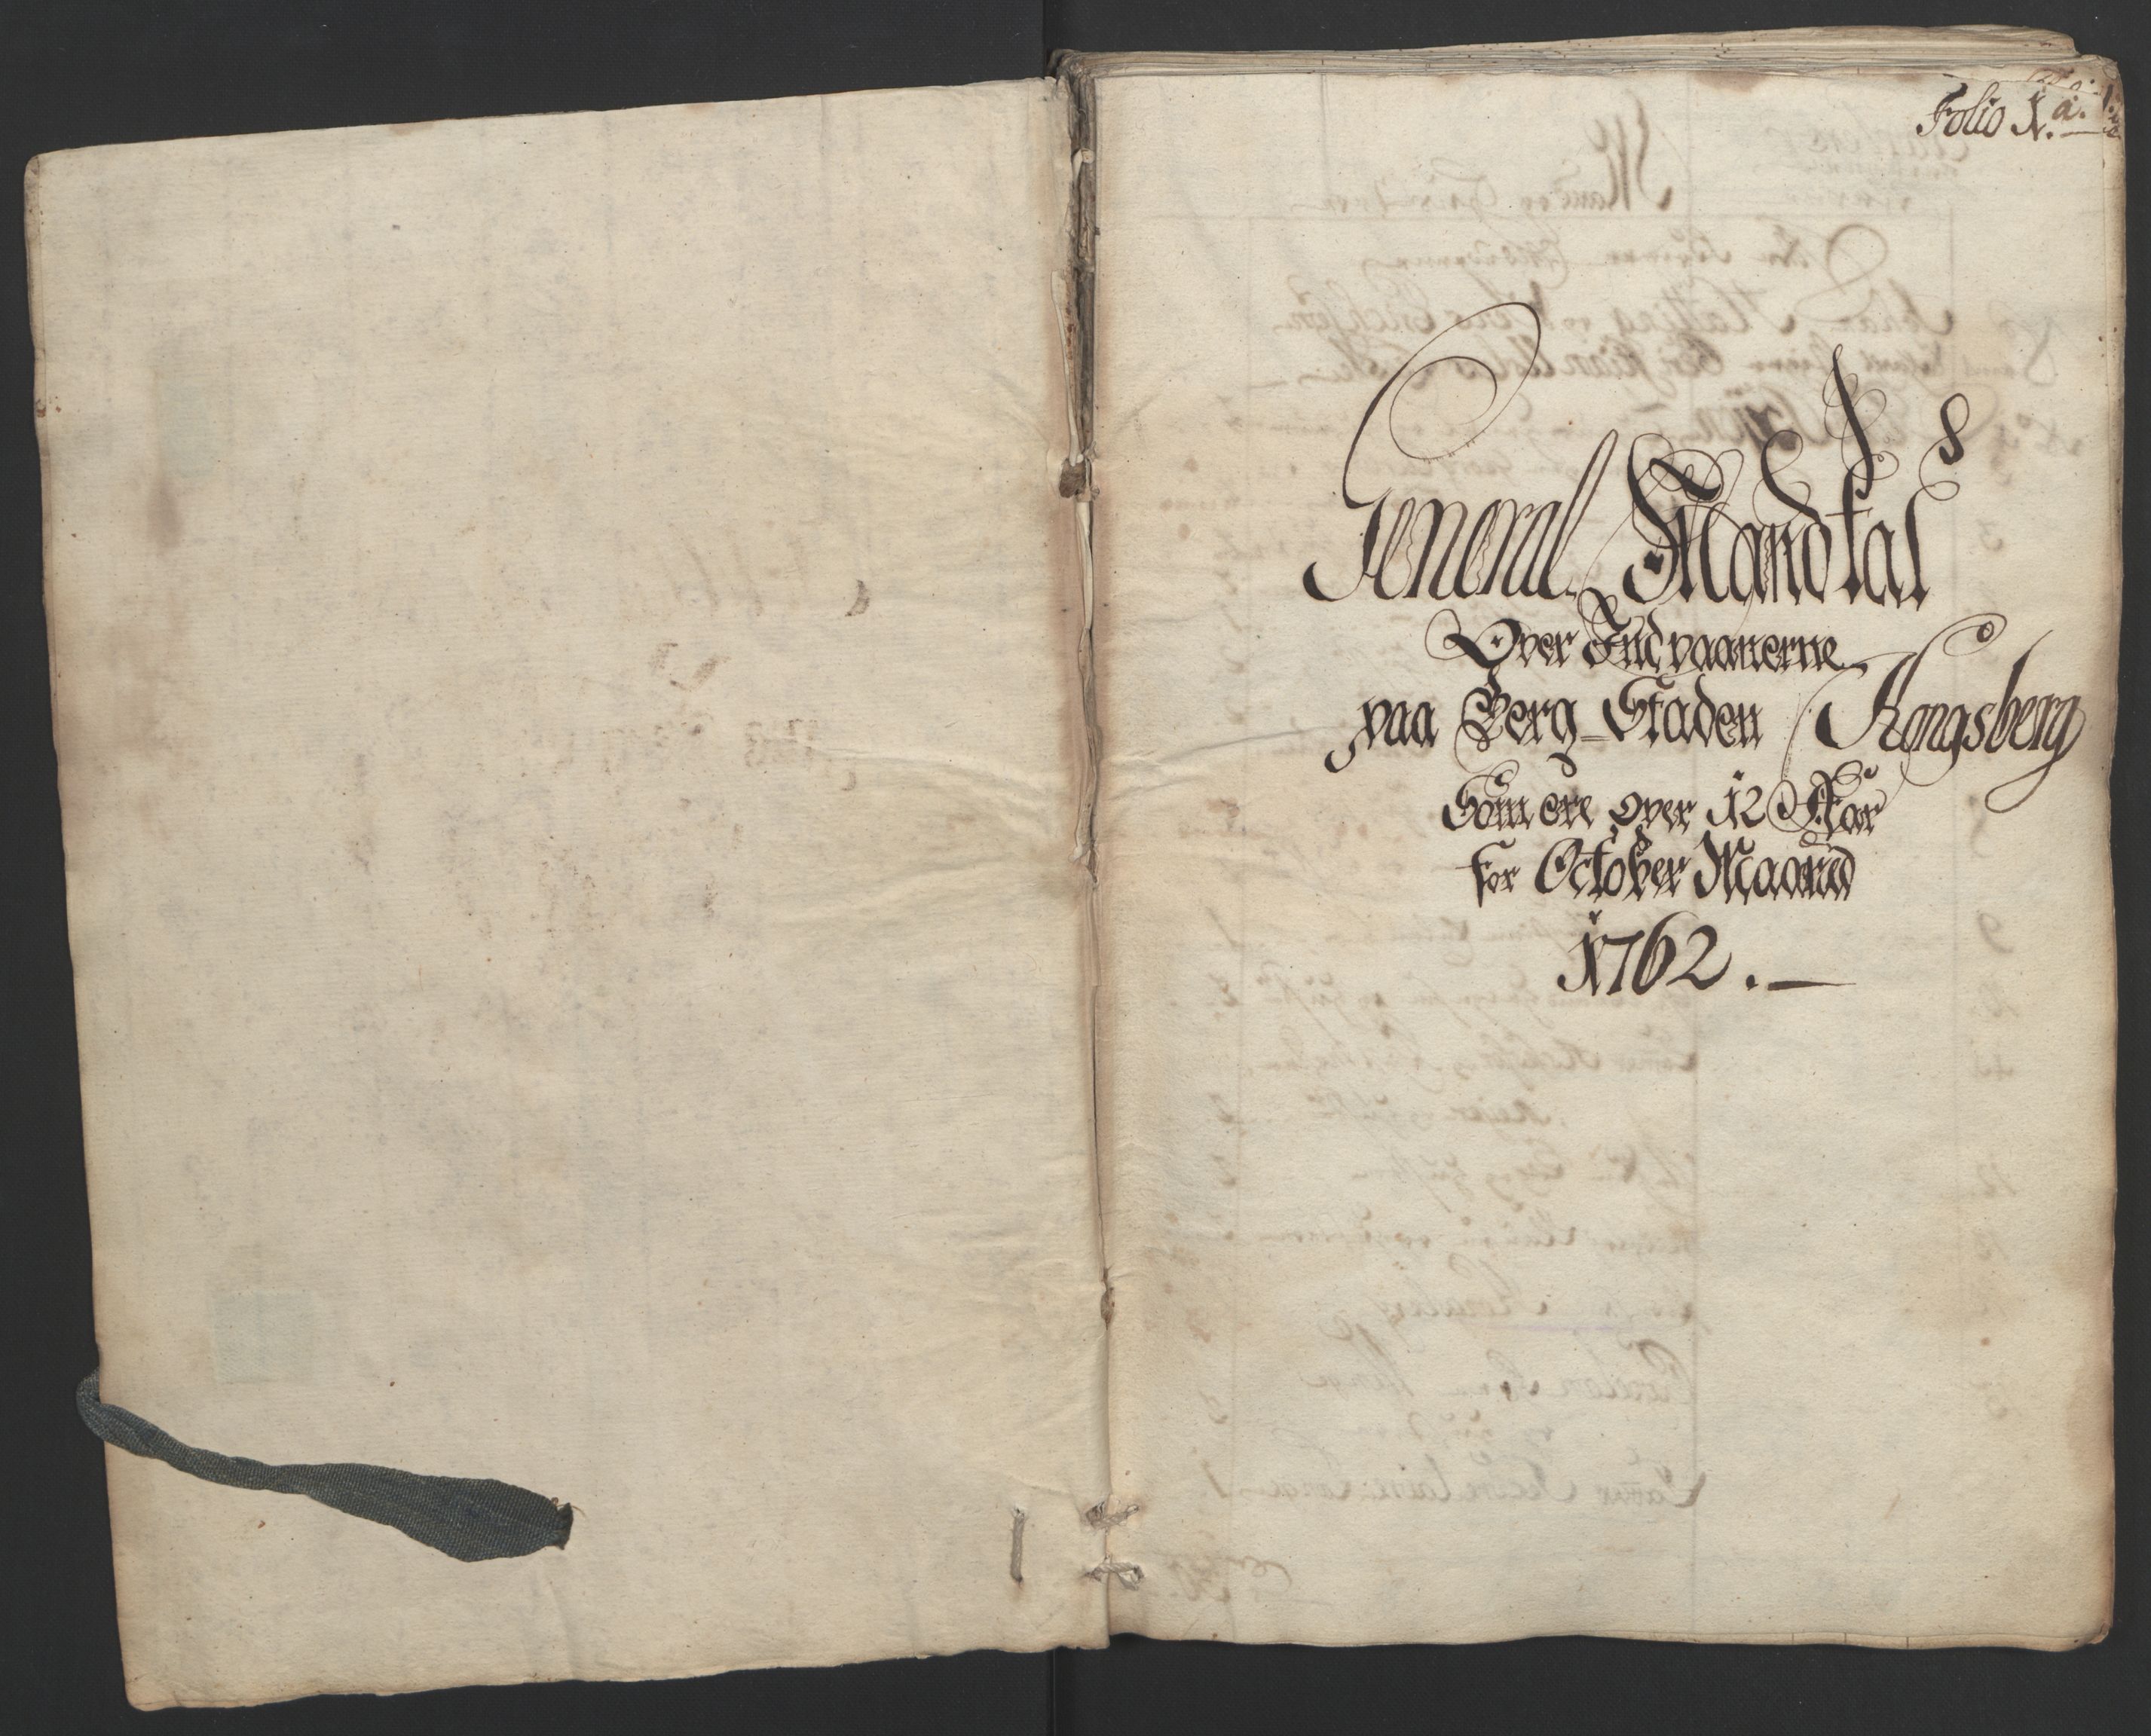 Folio 1. a.
General Mandtal
Over Indvaanerne
paa Berg-Staden Kongsberg
Som ere over 12 Aar
for October Maaned
1762.